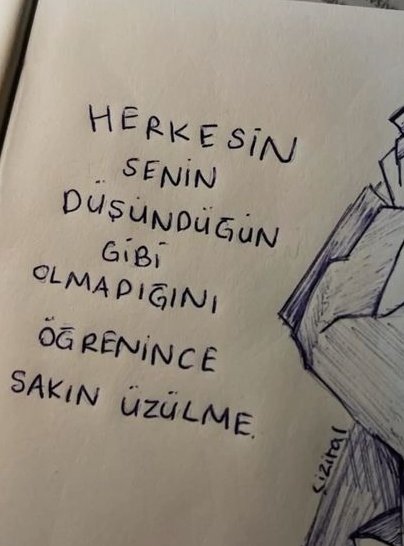 HERKESİN
SENİN
DÜŞÜNDÜĞÜN
GİBİ
OLMADIĞINI
ÖĞRENİNCE
SAKIN ÜZÜLME.
çizital